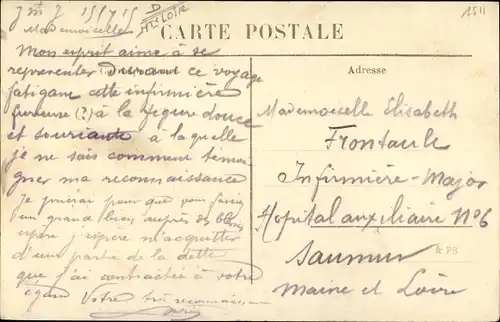 CARTE POSTALE
Mademoiselle
Mon esprit aime à se
representer durant ce voyage
fatigant cette infirmière
(?) à la figure douce
et souriante à laquelle
je ne sais comment témoi
gner ma reconnaissance
Je prierai pour que vous
un grand bien auprès des
j'espère m'acquitter
d'une partie de la dette
que j'ai contractée à votre
égard Votre très
Adresse
Mademoiselle Elisabeth
Frontault
Infirmière-Major
Hôpital auxiliaire No 6
Saumur
Maine et Loire